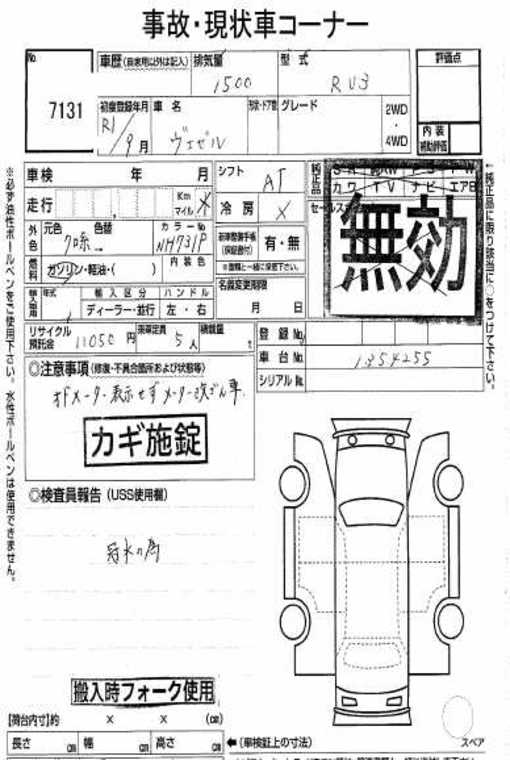 事故・現状車コーナー
No
7131
車歴(自家用以外は記入)
排気量
1500
型式
RU3
評価点
初度登録年月
R1/9月
車名
ヴェゼル
形状・ドア数
グレード
2WD
・
4WD
内装
補助評価
車検 年 月
シフト
AT
純正品
カワ TV ナビ エアB
走行
Km
マイル
冷房
セールス
無効
外色
元色
色替
クロ
カラーNo
NH731P
有・無
燃料
ガソリン・軽油・( )
内装色
名義変更期限
月 日
輸入車用
年式
輸入区分
ハンドル
ディーラー・並行
左・右
リサイクル預託金
11050 円
乗車定員
5人
積載量
t
登録No.
車台No.
1354255
シリアルNo.
◎注意事項(修復・不具合箇所および状態等)
オドメーター表示せず メーター改ざん車
カギ施錠
◎検査員報告(USS使用欄)
冠水の為
搬入時フォーク使用
【荷台内寸】約 × × (cm)
長さ cm 幅 cm 高さ cm
←(車検証上の寸法)
スペア
※必ず油性ボールペンをご使用下さい。水性ボールペンは使用できません。
←純正品に限り該当に○をつけて下さい。